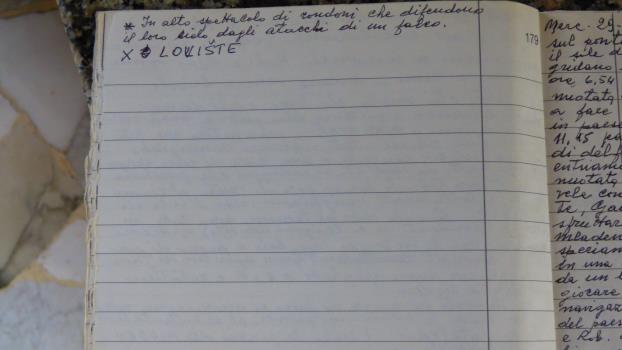 * In alto spettacolo di rondoni che difendono
il loro nido dagli attacchi di un falco.
X LOVISTE
179
Merc. 29.
sul ponte
il sile d
gridano
ore 6,54
nuotata
a fare
in paese
11,45 pa
di del f
entriamo
nuotata
vela con
Te, Ga
sfruttar
mladen
speriam
in una
da un l
giocare
navigaz
del paes
e Rob.